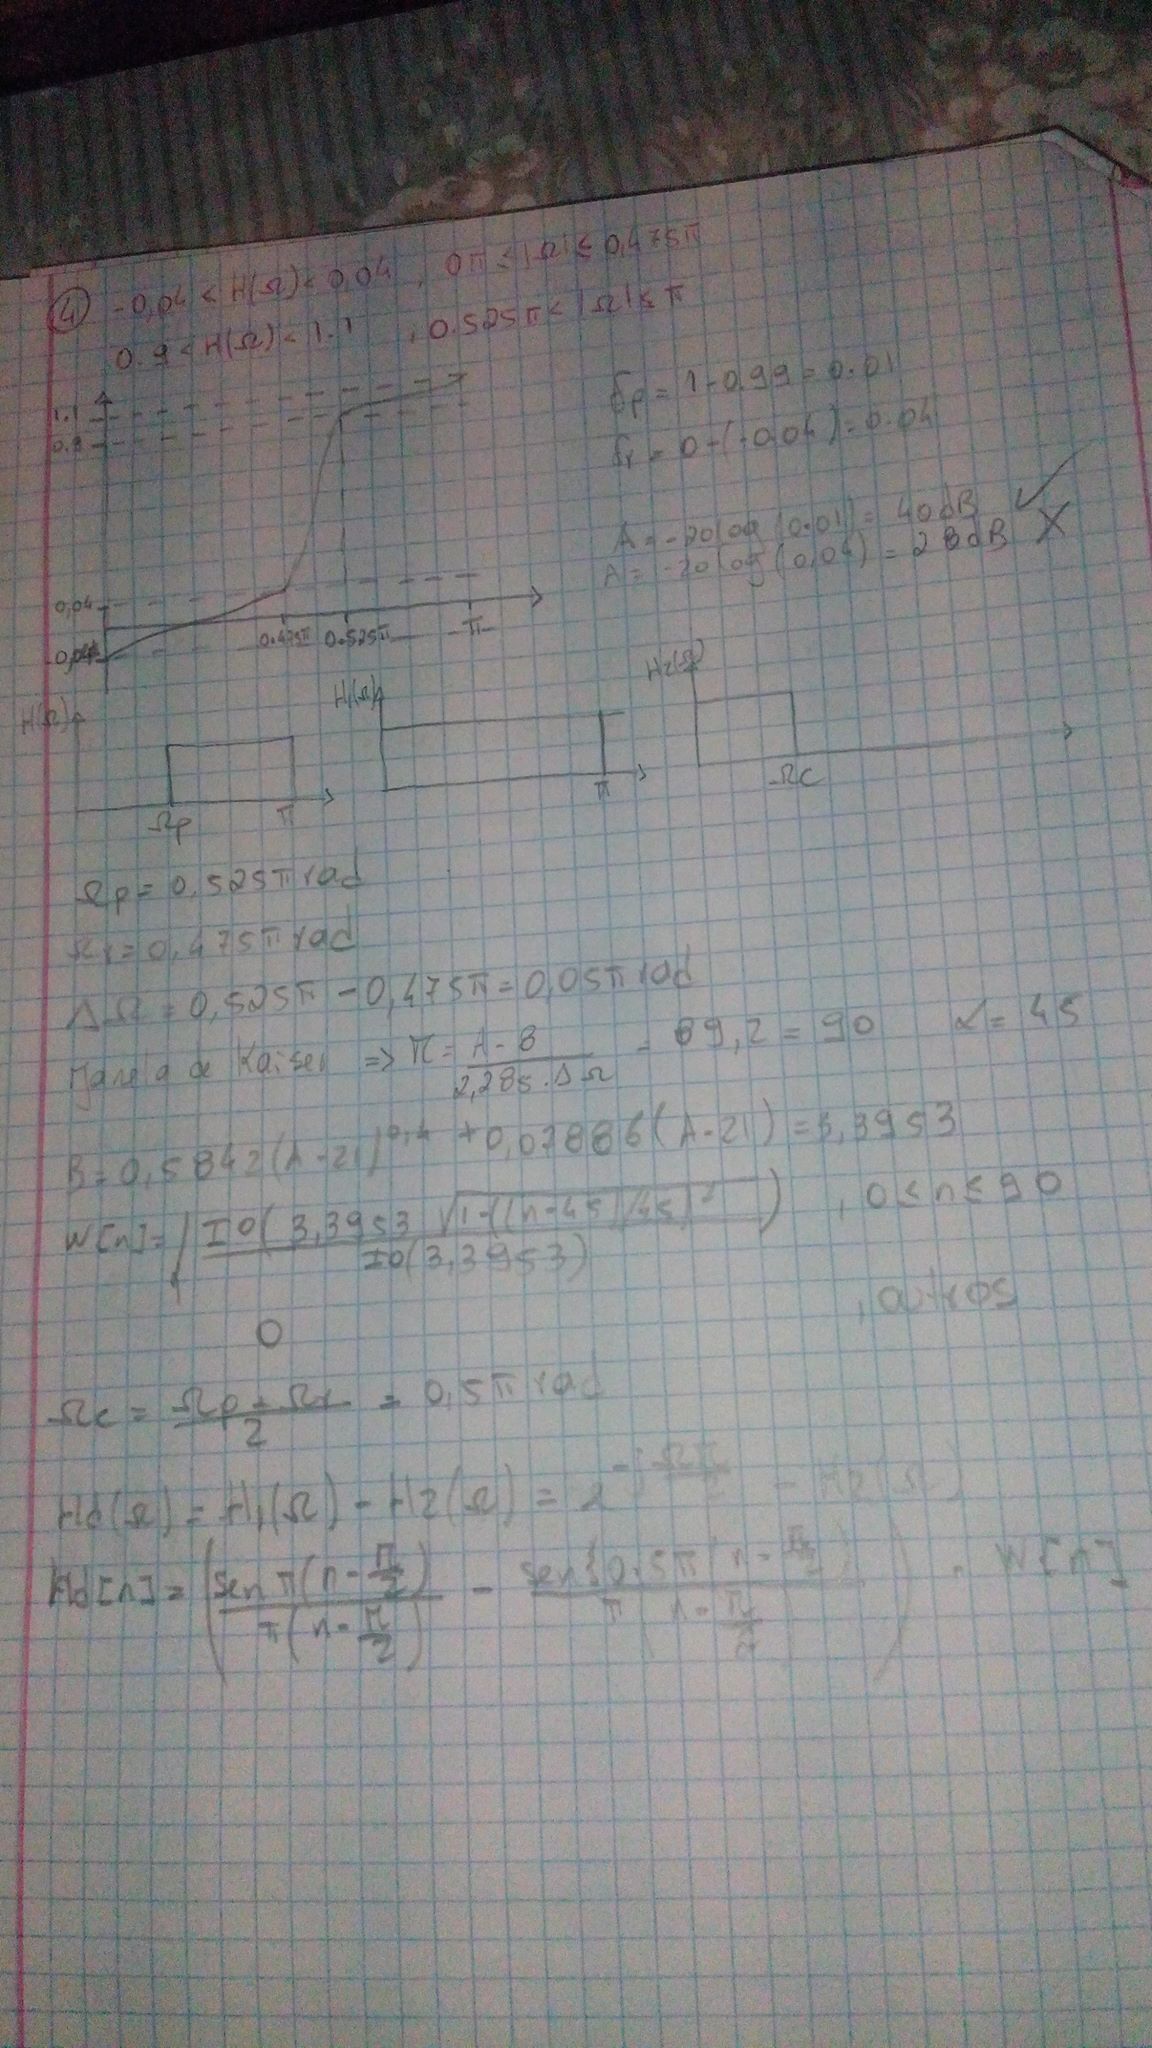 4 -0,04 < H(Ω) < 0,04 , 0π ≤ |Ω| ≤ 0,475π
0.9 < H(Ω) < 1.1 , 0.525π < |Ω| ≤ π
δp = 1-0.99 = 0.01
δr = 0-(-0.04) = 0.04
A = -20log(0.01) = 40dB ✓
A = -20log(0,04) = 28dB X
1.1
0.9
0,04
0.475π 0.525π π
H(Ω) H1(Ω) H2(Ω)
Ωp π π Ωc
Ωp = 0.525π rad
Ωr = 0,475π rad
ΔΩ = 0,525π - 0,475π = 0,05π rad
Janela de Kaiser => M = A-8 / 2,285.ΔΩ = 89,2 = 90 α = 45
B = 0,5842(A-21)^0,4 + 0,07886(A-21) = 3,3953
W[n] = { I0(3,3953 √1-((n-45)/45)² ) / I0(3,3953) , 0 ≤ n ≤ 90
0 , outros
Ωc = / 2 = 0,5π rad
Hd(Ω) = H1(Ω) - H2(Ω) = - H2(Ω)
Hd[n] = ( sen π(n - / 2) / π(n - / 2) - sen(0.5π(n - / 2) / π(n - / 2) ) . W[n]